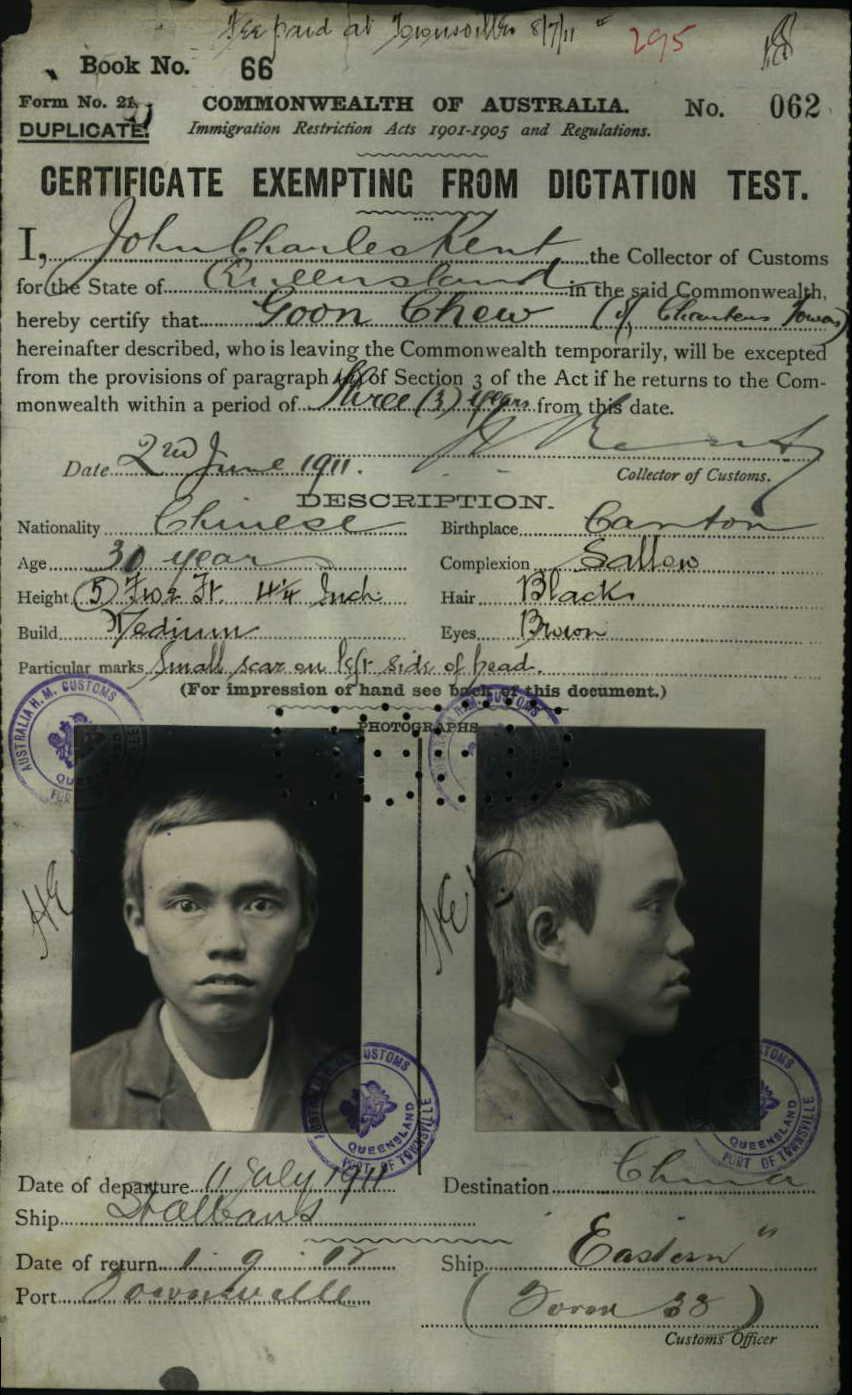 Fee paid at Townsville 8/7/11 295
Book No. 66
Form No. 21. COMMONWEALTH OF AUSTRALIA. No. 062
DUPLICATE Immigration Restriction Acts 1901-1905 and Regulations.
CERTIFICATE EXEMPTING FROM DICTATION TEST.
I, John Charles Kent the Collector of Customs
for the State of Queensland in the said Commonwealth,
hereby certify that Goon Chew (of Charters Towers)
hereinafter described, who is leaving the Commonwealth temporarily, will be excepted
from the provisions of paragraph of Section 3 of the Act if he returns to the Com-
monwealth within a period of Three (3) years from this date.
Date 2nd June 1911.
Collector of Customs.
DESCRIPTION.
Nationality Chinese Birthplace Canton
Age 30 year Complexion Sallow
Height (5) Ft. 4¼ Inch Hair Black
Build Medium Eyes Brown
Particular marks Small scar on left side of head.
(For impression of hand see back of this document.)
PHOTOGRAPHS
AUSTRALIA H.M. CUSTOMS
AUSTRALIA H.M. CUSTOMS QUEENSLAND PORT OF TOWNSVILLE
CUSTOMS QUEENSLAND PORT OF TOWNSVILLE
Date of departure 11 July 1911 Destination China
Ship St Albans
Date of return 1. 9. 12 Ship "Eastern"
Port Townsville (Form 38)
Customs Officer